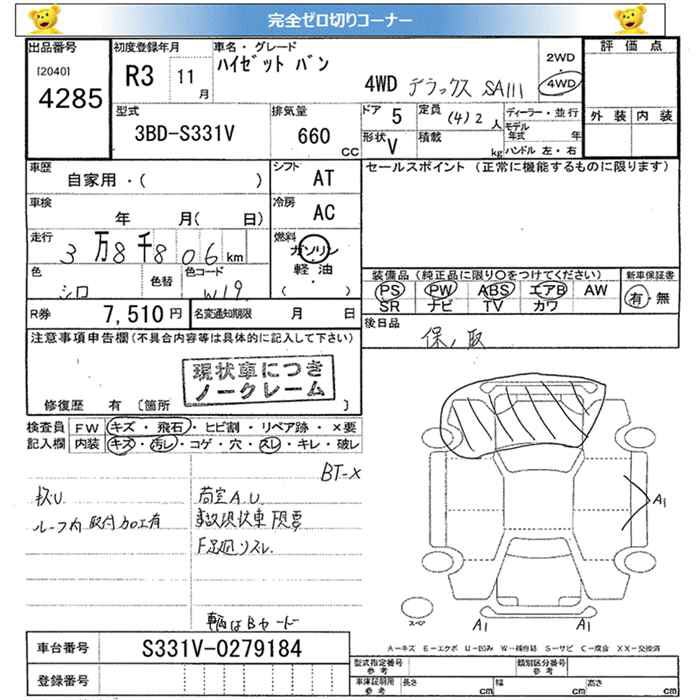 完全ゼロ切りコーナー
出品番号 初度登録年月 車名・グレード 評価点
[2040] 4285 R3 11月 ハイゼット バン 4WD デラックス SAIII 2WD 4WD
外装 内装
型式 3BD-S331V 排気量 660 CC ドア 5 定員 (4)2人 ディーラー・並行
形状 V 積載 kg モデル年式 年 ハンドル 左・右
車歴 自家用・( ) シフト AT セールスポイント (正常に機能するものに限ります)
車検 年 月( 日) 冷房 AC
走行 3万8千806km 燃料 ガソリン 軽油 ( )
色 シロ 色替 色コード W19
装備品 (純正品に限り〇をつけてください) 新車保証書
PS PW ABS エアB AW 有・無
SR ナビ TV カワ
R券 7,510円 名変通知期限 月 日
後日品 保ノ取
注意事項申告欄 (不具合内容等は具体的に記入して下さい)
現状車につき
ノークレーム
修復歴 有 〔箇所 〕
検査員記入欄 FW キズ・飛石・ヒビ割・リペア跡・×要
内装 キズ・汚レ・コゲ・穴・スレ・キレ・破レ
BT-X
ルーフ内 取付加工有
荷室A.U
A1
スペア
A1 A1
A-キズ E-エクボ U-凹み W-補修跡 S-サビ C-腐食 XX-交換済
車台番号 S331V-0279184
登録番号
型式指定番号 参考 類別区分番号 参考
車庫証明用 参考 長さ cm 幅 cm 高さ cm